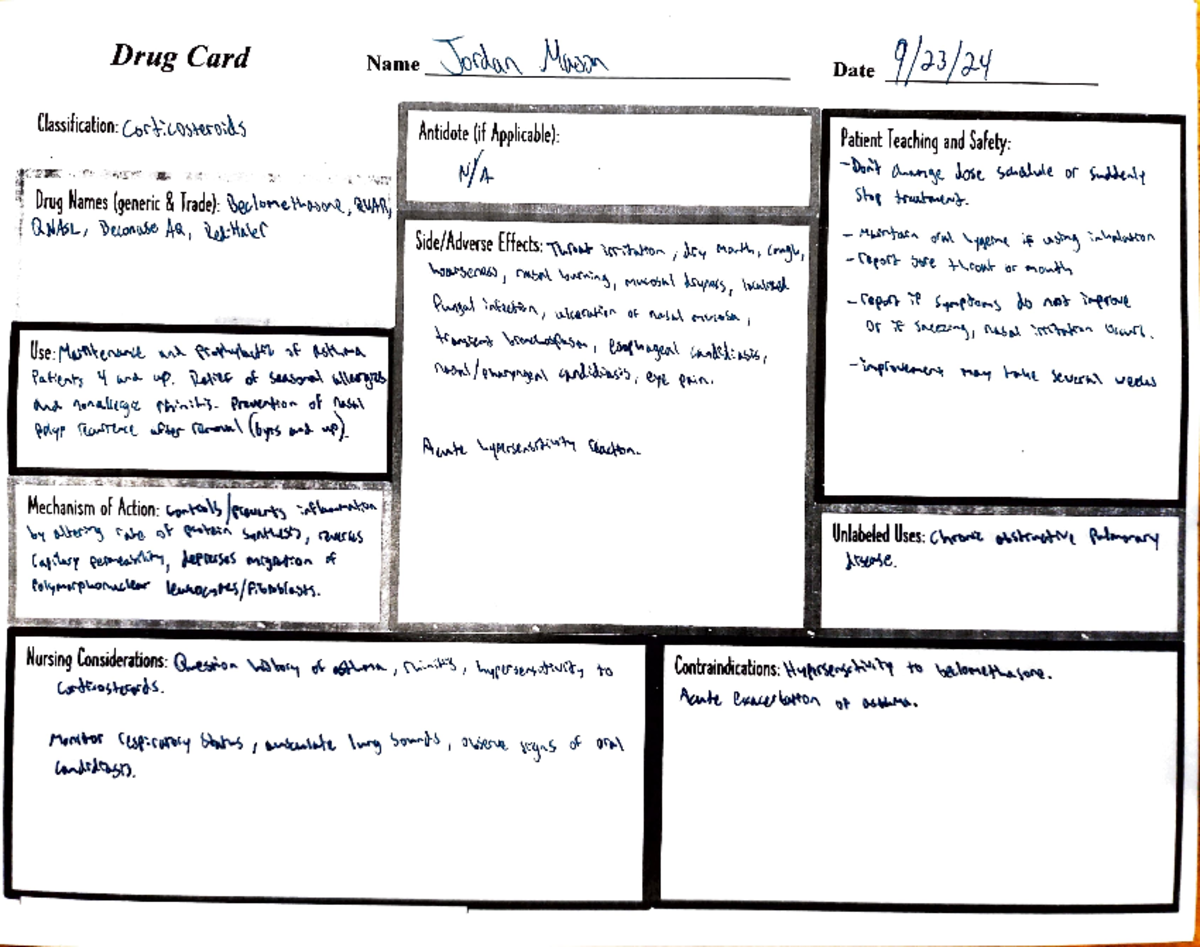 Drug Card
Name Jordan Mason
Date 9/23/24
Classification: Corticosteroids
Drug Names (generic & Trade): Beclomethasone, QVAR,
QNASL, Beconase AQ, RediHaler
Use: Maintenance and Prophylactic of asthma
Patients 4 and up. Relief of seasonal allergies
and nonallergic rhinitis. Prevention of nasal
polyp recurrence after removal (6yrs and up).
Mechanism of Action: controls/prevents inflammation
by altering rate of protein synthesis, reverses
Capillary permeability, depresses migration of
Polymorphonuclear leukocytes/fibroblasts.
Antidote (if Applicable):
N/A
Side/Adverse Effects: Throat irritation, dry mouth, cough,
hoarseness, nasal burning, mucosal dryness, localized
Fungal infection, ulceration of nasal mucosa,
transient bronchospasm, esophageal candidiasis,
nasal/pharyngeal candidiasis, eye pain.
Acute hypersensitivity reaction.
Patient Teaching and Safety:
- Don't change dose schedule or suddenly
stop treatment.
- Maintain oral hygiene if using inhalation
- report sore throat or mouth
- report if symptoms do not improve
or if sneezing, nasal irritation occurs.
- improvement may take several weeks
Unlabeled Uses: Chronic obstructive pulmonary
disease.
Nursing Considerations: Question history of asthma, rhinitis, hypersensitivity to
corticosteroids.
Monitor respiratory status, auscultate lung sounds, observe signs of oral
candidiasis.
Contraindications: Hypersensitivity to beclomethasone.
Acute exacerbation of asthma.